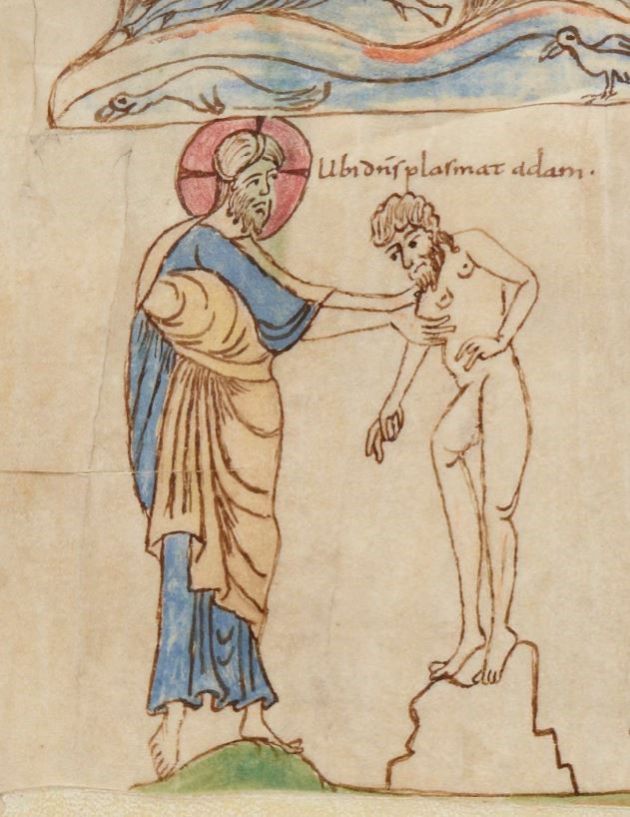 Ubi dn̄s plasmat adam.